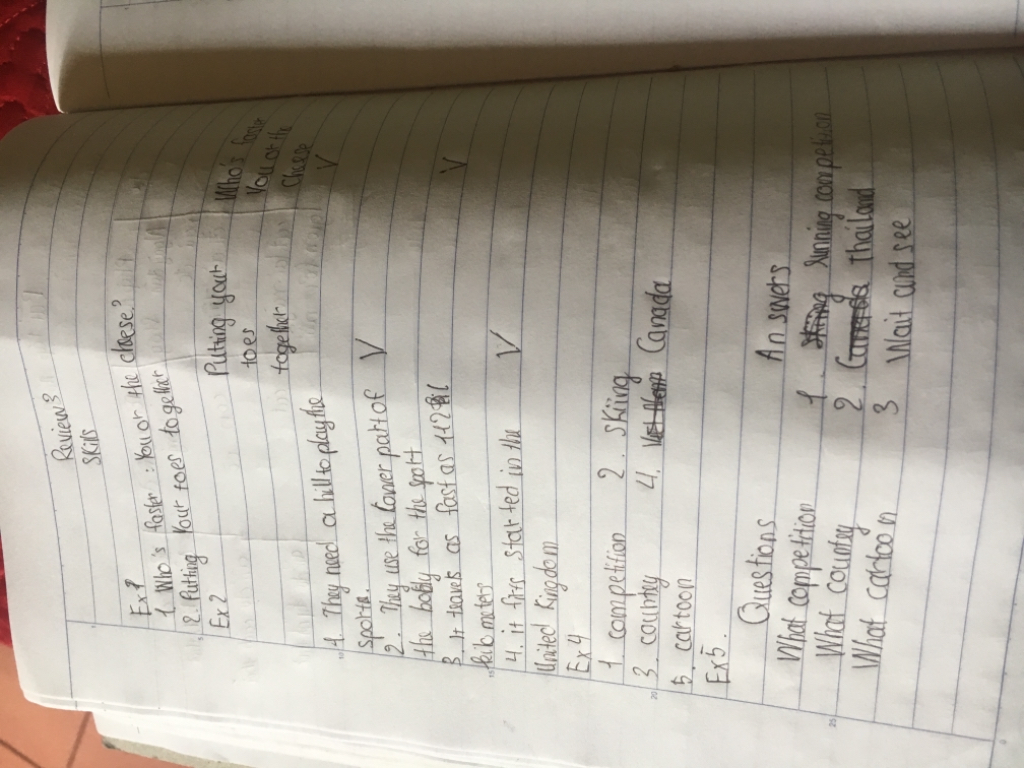 Review 3
Skills
Ex 1
1. Who's faster : You or the cheese?
2. Putting Your toes together
Ex 2
Putting your toes together
Who's faster You or the cheese
1. They need a hill to play the V
sports.
2. They use the lower part of V
the boldy for the sport
3. It travels as fast as 112 V
kilo meters
4. it firs started in the V
United Kingdom
Ex 4
1. competition 2. skiing
3. country 4. Canada
5. cartoon
Ex 5.
Questions Answers
What competition 1. running competition
What country 2. thailand
What cartoon 3 Wait and see